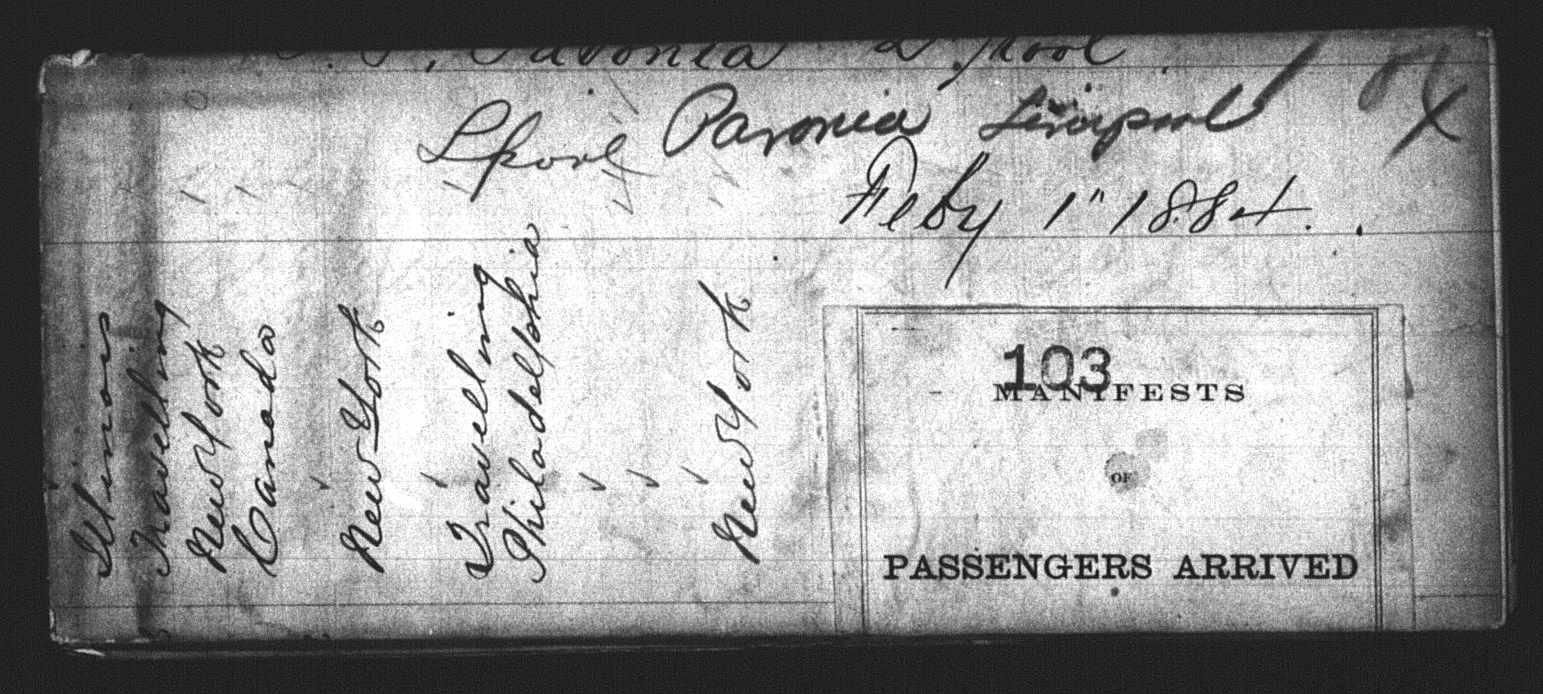 S. S. Pavonia L'pool
Lpool Pavonia Liverpool
Feby 1" 1884.
Illinois
Travelling
New York
Canada
New York
Travelling
Philadelphia
New York
103
MANIFESTS
OF
PASSENGERS ARRIVED